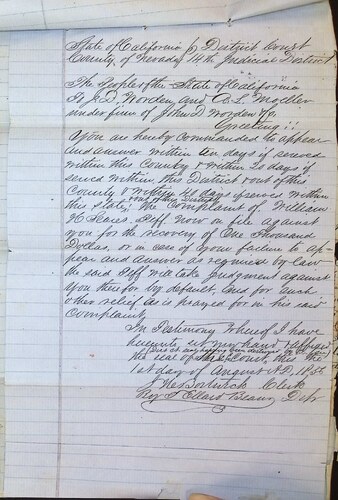 State of California } District Court
County of Nevada } 14th Judicial District
The People of the State of California
To J. D. Worden and A. L. Moeller
under firm of John D Worden & Co.
Greeting!!
You are hereby commanded to appear
and answer within ten days if served
within this County & within 20 days if
served within this District & out of this
County & within 40 days if served within
this State & out of this District
the Complaint of William
H Rees, Plff now on file against
you for the recovery of One Thousand
Dollars, or in case of your failure to ap-
pear and answer as required by law
the said Plff will take judgment against
you therefor by default, and for such
other relief as is prayed for in his said
Complaint
In Testimony whereof I have
hereunto set my hand & affixed
the seal of the Court this the
1st day of August A.D. 185
Clerk
By J Ellard Beans Dep